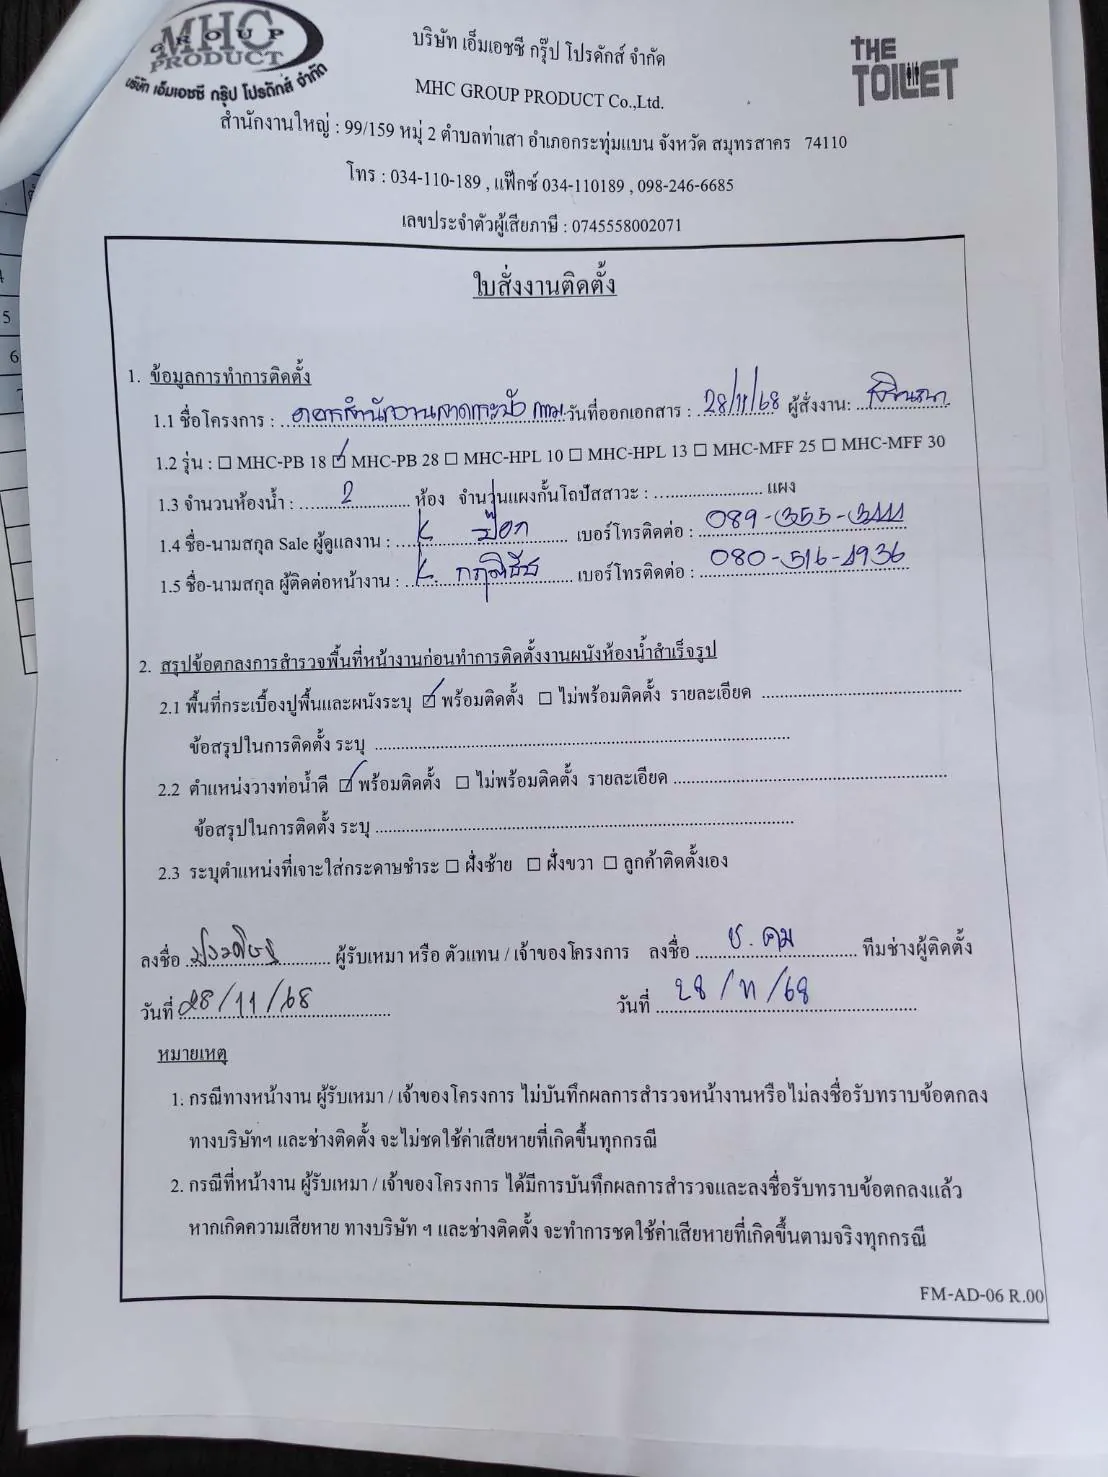 MHC
GROUP
PRODUCT
บริษัท เอ็มเอชซี กรุ๊ป โปรดักส์ จำกัด
บริษัท เอ็มเอชซี กรุ๊ป โปรดักส์ จำกัด
MHC GROUP PRODUCT Co.,Ltd.
THE
TOILET
สำนักงานใหญ่ : 99/159 หมู่ 2 ตำบลท่าเสา อำเภอกระทุ่มแบน จังหวัด สมุทรสาคร 74110
โทร : 034-110-189 , แฟ๊กซ์ 034-110189 , 098-246-6685
เลขประจำตัวผู้เสียภาษี : 0745558002071
ใบสั่งงานติดตั้ง
1. ข้อมูลการทำการติดตั้ง
1.1 ชื่อโครงการ : อาคารสำนักงานลาดกระบัง กทม. วันที่ออกเอกสาร : 28/11/68 ผู้สั่งงาน:
1.2 รุ่น : ☐ MHC-PB 18 ☑ MHC-PB 28 ☐ MHC-HPL 10 ☐ MHC-HPL 13 ☐ MHC-MFF 25 ☐ MHC-MFF 30
1.3 จำนวนห้องน้ำ : 2 ห้อง จำนวนแผงกั้นโถปัสสาวะ : ........ แผง
1.4 ชื่อ-นามสกุล Sale ผู้ดูแลงาน : K ป๊อก เบอร์โทรติดต่อ : 089-355-3111
1.5 ชื่อ-นามสกุล ผู้ติดต่อหน้างาน : K เบอร์โทรติดต่อ : 080-516-4936
2. สรุปข้อตกลงการสำรวจพื้นที่หน้างานก่อนทำการติดตั้งงานผนังห้องน้ำสำเร็จรูป
2.1 พื้นที่กระเบื้องปูพื้นและผนังระบุ ☑ พร้อมติดตั้ง ☐ ไม่พร้อมติดตั้ง รายละเอียด ........
ข้อสรุปในการติดตั้ง ระบุ ........
2.2 ตำแหน่งวางท่อน้ำดี ☑ พร้อมติดตั้ง ☐ ไม่พร้อมติดตั้ง รายละเอียด ........
ข้อสรุปในการติดตั้ง ระบุ ........
2.3 ระบุตำแหน่งที่เจาะใส่กระดาษชำระ ☐ ฝั่งซ้าย ☐ ฝั่งขวา ☐ ลูกค้าติดตั้งเอง
ลงชื่อ ........ ผู้รับเหมา หรือ ตัวแทน / เจ้าของโครงการ ลงชื่อ ช. คม ทีมช่างผู้ติดตั้ง
วันที่ 28/11/68 วันที่ 28/11/68
หมายเหตุ
1. กรณีทางหน้างาน ผู้รับเหมา / เจ้าของโครงการ ไม่บันทึกผลการสำรวจหน้างานหรือไม่ลงชื่อรับทราบข้อตกลง
ทางบริษัทฯ และช่างติดตั้ง จะไม่ชดใช้ค่าเสียหายที่เกิดขึ้นทุกกรณี
2. กรณีที่หน้างาน ผู้รับเหมา / เจ้าของโครงการ ได้มีการบันทึกผลการสำรวจและลงชื่อรับทราบข้อตกลงแล้ว
หากเกิดความเสียหาย ทางบริษัท ฯ และช่างติดตั้ง จะทำการชดใช้ค่าเสียหายที่เกิดขึ้นตามจริงทุกกรณี
FM-AD-06 R.00